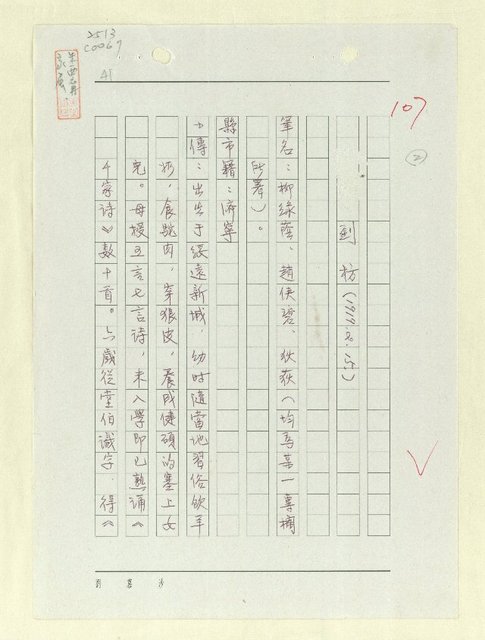 2513
C0067
41
107
②
劉枋(1919.3.15)
筆名:柳綠蔭、趙俠碧、狄荻(均為某一專欄
所署)。
縣市籍:濟寧
小傳:出生于綏遠新城,幼時隨當地習俗飲羊
奶,食駝肉,穿狼皮,養成健碩的塞上女
兒。母授五言七言詩,未入學即已熟誦《
千家詩》數十首。六歲從堂伯識字,得《
劉慕沙